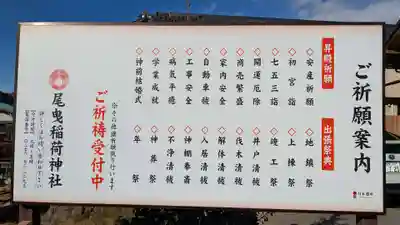 ご祈願案内
昇殿祈願
◇安産祈願
◇初宮詣
◇七五三詣
◇開運厄除
◇商売繁盛
◇家内安全
◇自動車祓
◇工事安全
◇病気平癒
◇学業成就
◇神前結婚式
出張祭典
◇地鎮祭
◇上棟祭
◇竣工祭
◇井戸清祓
◇伐木清祓
◇解体清祓
◇入居清祓
◇神棚奉斎
◇不浄清祓
◇神葬祭
◇年祭
※その他諸祈願致します
ご祈祷受付中
尾曳稲荷神社